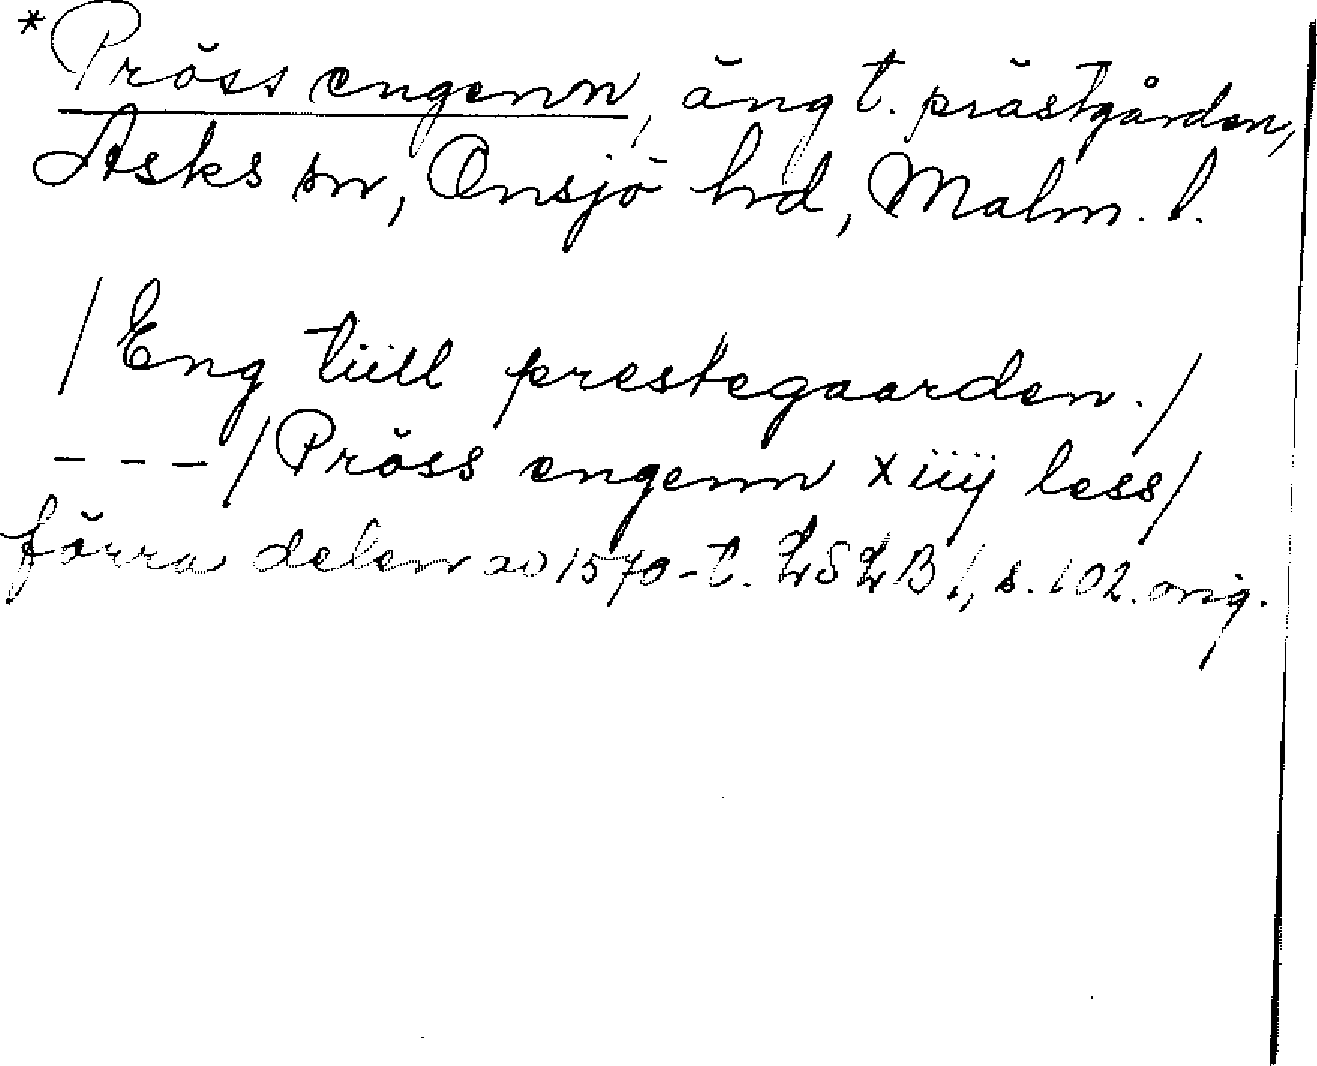 *Pröss engenn, äng t. prästgården,
Asks sn, Onsjö hd, Malm. l.
/Eng tiill prestegaarden./
- - - /Pröss engenn xiiij less/
förra delen av 1570-t. LSLB 1, s. 102. orig.